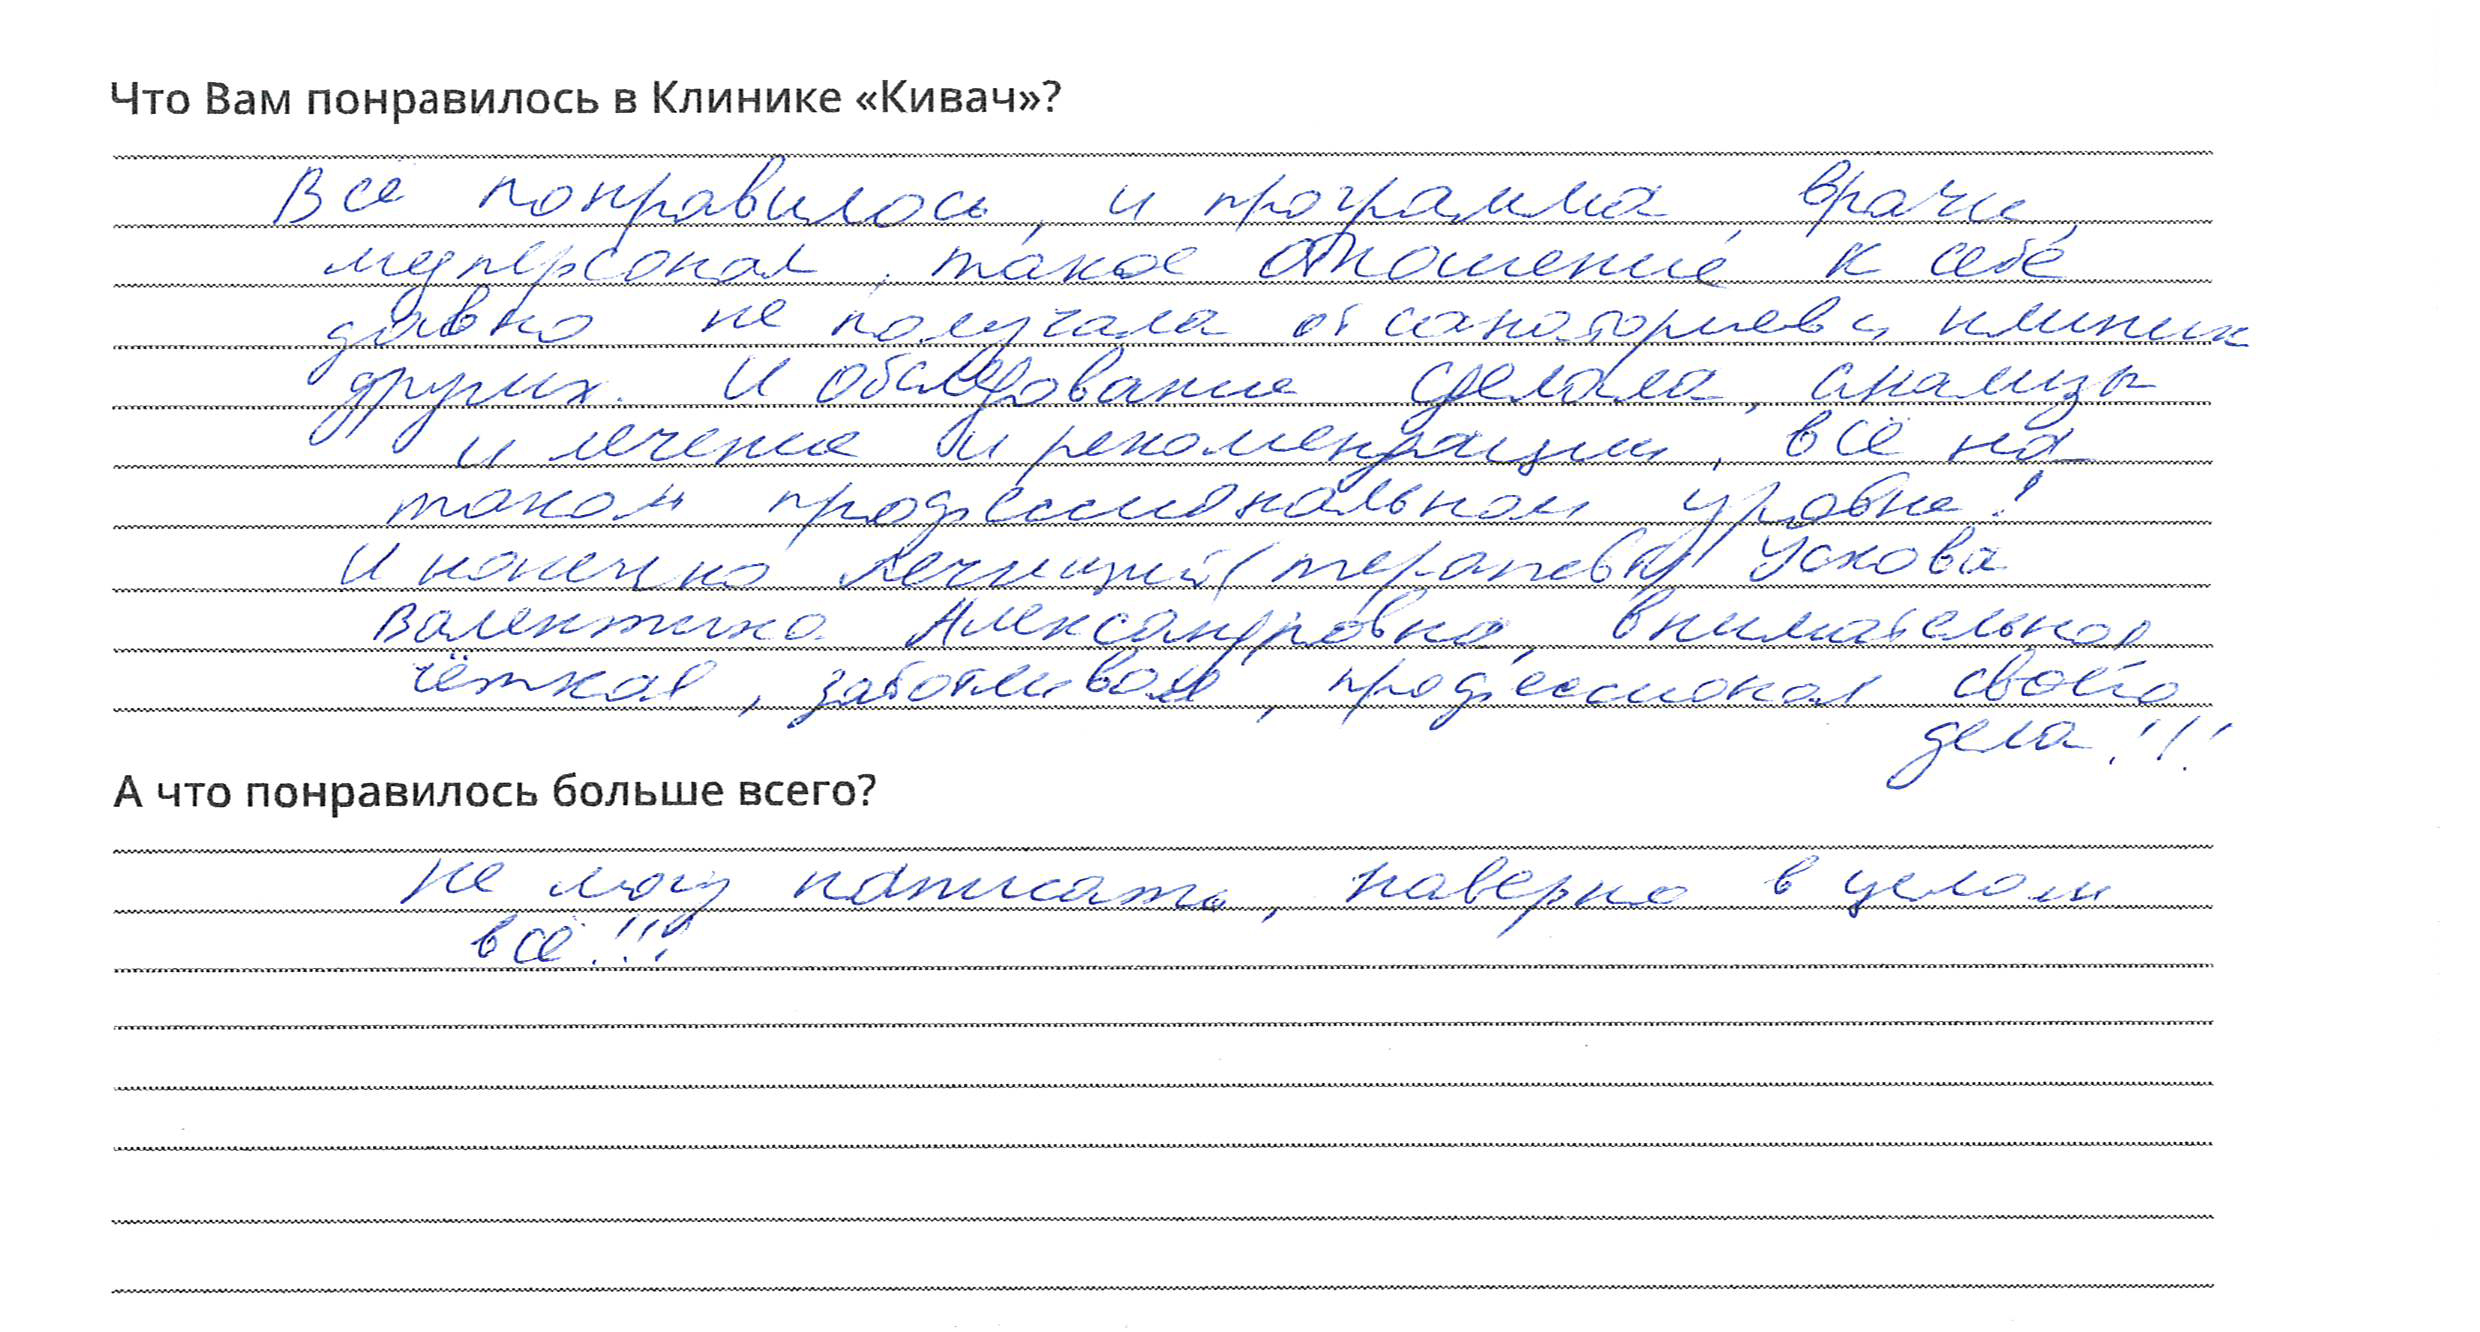 Что Вам понравилось в Клинике «Кивач»?
Всё понравилось, и программа, врачи,
медперсонал, такое отношение к себе
давно не получала от санаториев и клиник
других. И обследование сделала, анализы
и лечение и рекомендации, всё на
таком профессиональном уровне!
И конечно лечащий (терапевт) Ускова
Валентина Александровна, внимательная
чёткая, заботливая, профессионал своего
дела!!!
А что понравилось больше всего?
Не могу написать, наверно в целом
всё!!!